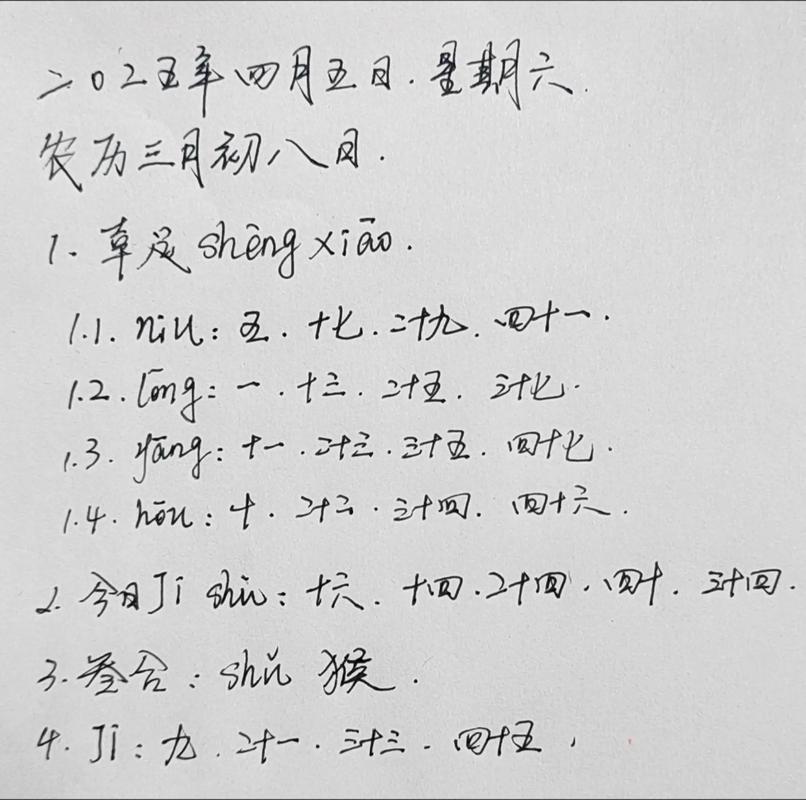 二〇二五年四月五日.星期六.
农历三月初八日.
1.草足shēngxiāo.
1.1.niu:五.十七.二十九.四十一.
1.2.lōng:一.十三.二十五.三十七.
1.3.yāng:十一.二十三.三十五.四十七.
1.4.hōu:十.二十二.三十四.四十六.
2.今日Ji shù:十六.十四.二十四.四十.三十四.
3.叁合:shǔ 猴.
4.Jī:九.二十一.三十三.四十五,